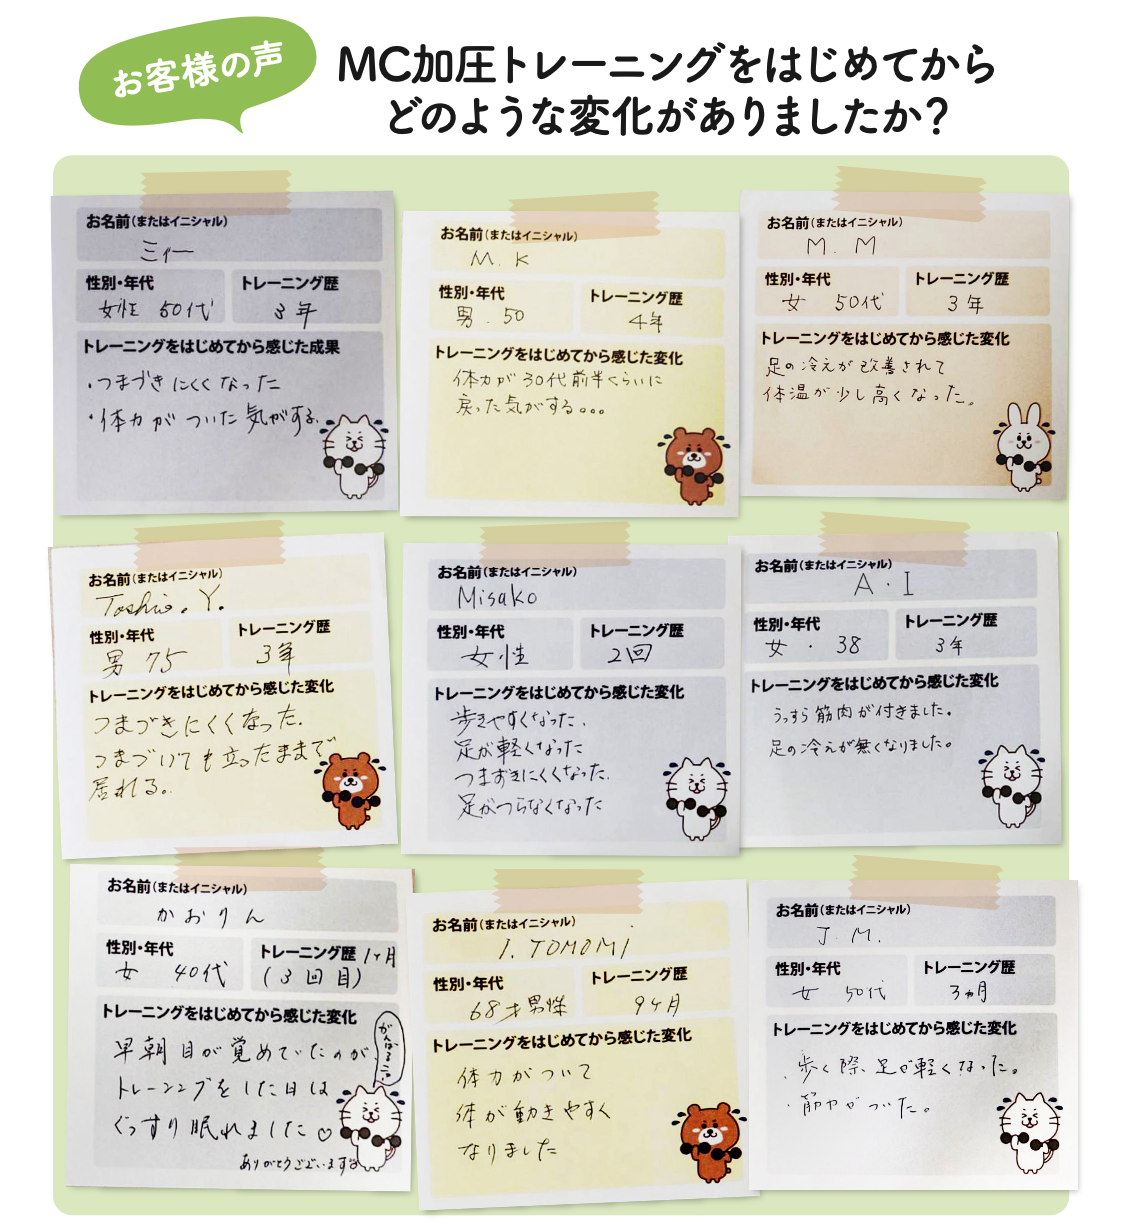 お客様の声
MC加圧トレーニングをはじめてから
どのような変化がありましたか？
お名前(またはイニシャル)
ミィー
性別・年代
トレーニング歴
女性 50代
3年
トレーニングをはじめてから感じた成果
・つまづきにくくなった
・体力がついた気がする。
お名前(またはイニシャル)
M. K
性別・年代
トレーニング歴
男. 50
4年
トレーニングをはじめてから感じた変化
体力が30代前半くらいに
戻った気がする。。。
お名前(またはイニシャル)
M. M
性別・年代
トレーニング歴
女 50代
3年
トレーニングをはじめてから感じた変化
足の冷えが改善されて
体温が少し高くなった。
お名前(またはイニシャル)
Toshio. Y.
性別・年代
トレーニング歴
男 75
3年
トレーニングをはじめてから感じた変化
つまづきにくくなった.
つまづいても立ったままで
居れる。
お名前(またはイニシャル)
Misako
性別・年代
トレーニング歴
女性
2回
トレーニングをはじめてから感じた変化
歩きやすくなった.
足が軽くなった
つまずきにくくなった.
足がつらなくなった
お名前(またはイニシャル)
A・I
性別・年代
トレーニング歴
女・38
3年
トレーニングをはじめてから感じた変化
うっすら筋肉が付きました。
足の冷えが無くなりました。
お名前(またはイニシャル)
かおりん
性別・年代
トレーニング歴 1ヶ月
女 40代
(3回目)
トレーニングをはじめてから感じた変化
がんばるこ
早朝目が覚めていたのが
トレーニングをした日は
ぐっすり眠れました♡
ありがとうございます
お名前(またはイニシャル)
I. TOMOMI
性別・年代
トレーニング歴
68才男性
9ヶ月
トレーニングをはじめてから感じた変化
体力がついて
体が動きやすく
なりました
お名前(またはイニシャル)
J. M.
性別・年代
トレーニング歴
女 50代
3ヵ月
トレーニングをはじめてから感じた変化
・歩く際、足が軽くなった。
・筋力がついた。